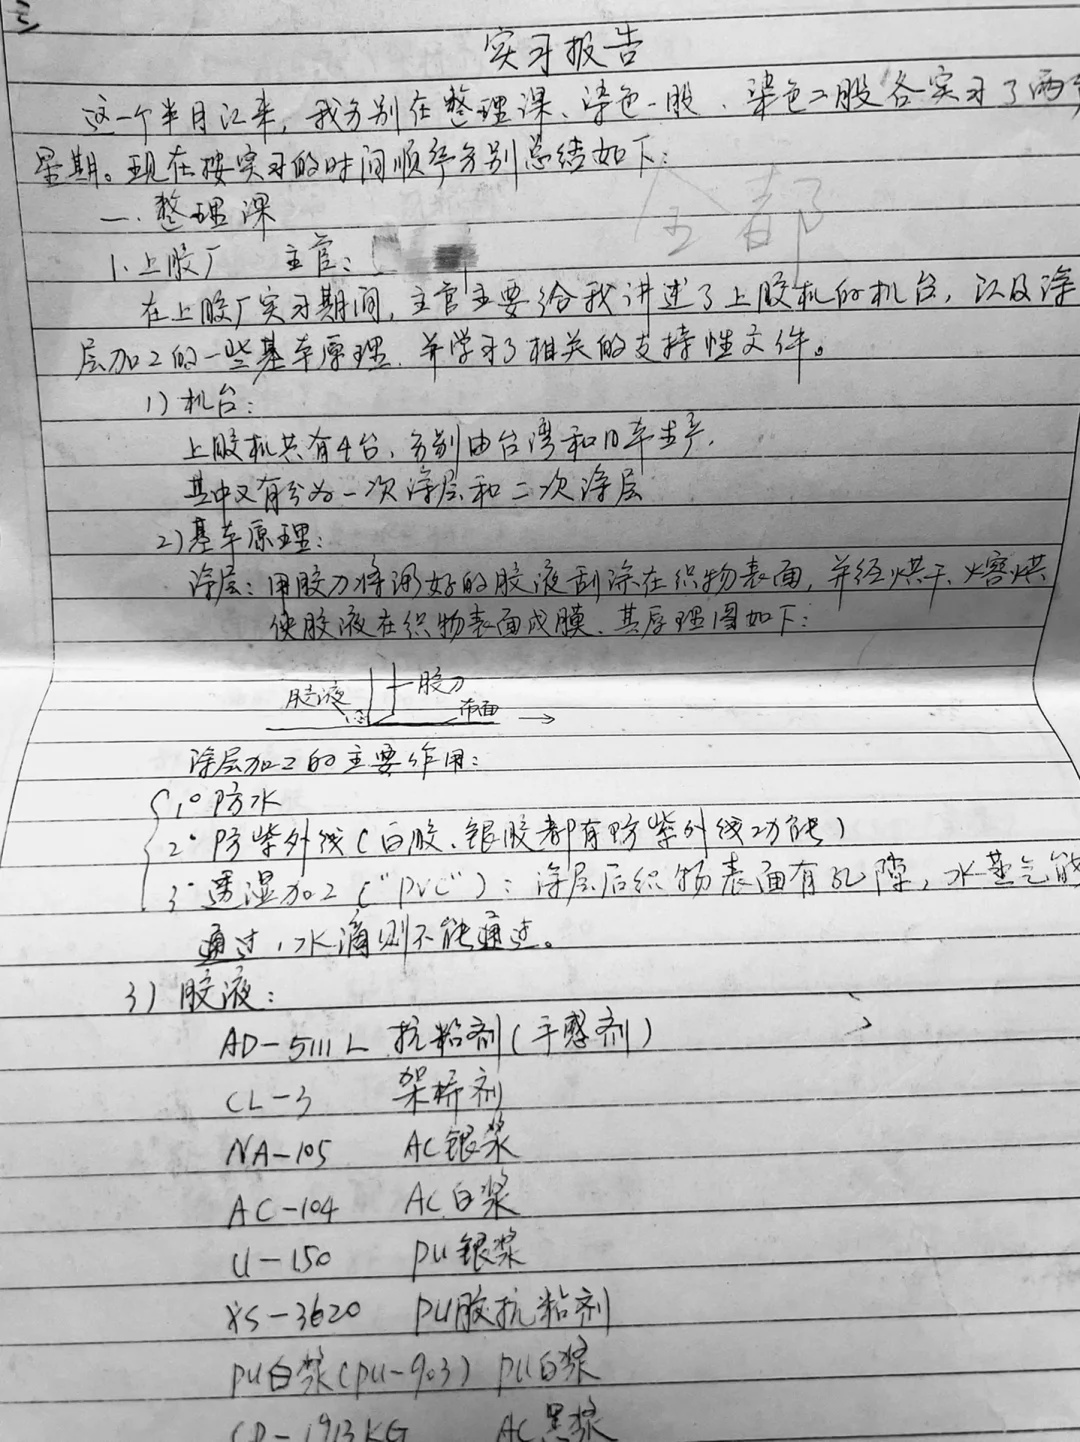 实习报告
这一个半月以来，我分别在整理课、染色一股、染色二股各实习了两
星期。现在按实习的时间顺序分别总结如下：
全部
一、整理课
1、上胶厂 主官：
在上胶厂实习期间，主官主要给我讲述了上胶机的机台，以及涂
层加工的一些基本原理，并学习了相关的支持性文件。
1）机台：
上胶机共有4台，分别由台湾和日本生产，
其中又有分为一次涂层和二次涂层
2）基本原理：
涂层：用胶刀将调好的胶液刮涂在织物表面，并经烘干、熔烘
使胶液在织物表面成膜、其原理图如下：
胶液 胶刀 布面
涂层加工的主要作用：
1° 防水
2° 防紫外线（白胶、银胶都有防紫外线功能）
3° 透湿加工（"PVC"）：涂层后织物表面有孔隙，水蒸气能
通过，水滴则不能通过。
3）胶液：
AD-5111L 抗粘剂（手感剂）
CL-3 架桥剂
NA-105 AC银浆
AC-104 AC白浆
U-150 PU银浆
XS-3620 PU胶抗粘剂
PU白浆（PU-903） PU白浆
CD-1913KG AC黑浆